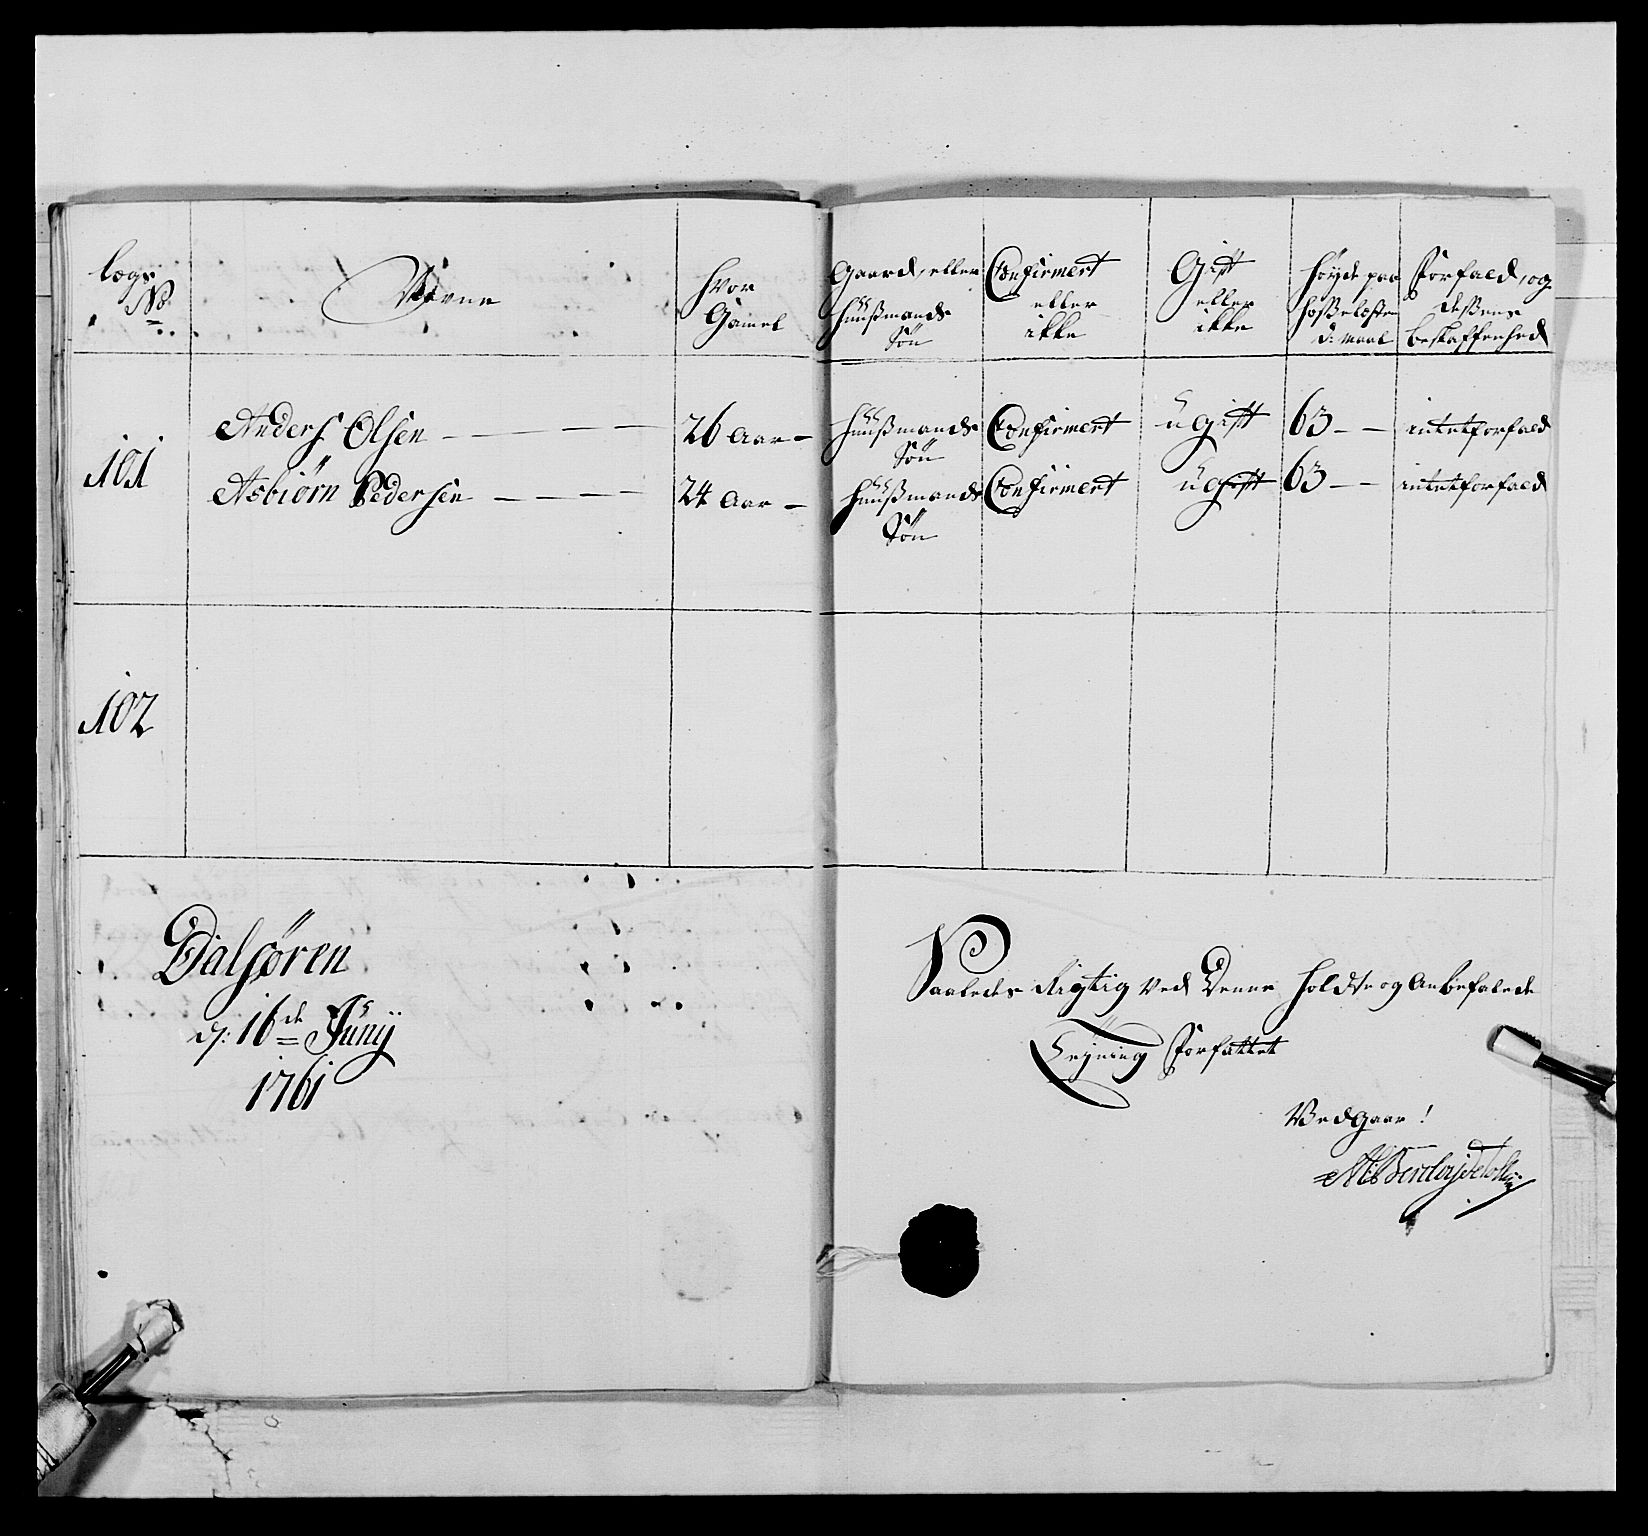 Lægs No
Navne
Hvor Gamel
Gaard, eller Huusmands Søn
Confirmert eller ikke
Gift eller ikke
Høyde paa Hoseleste d: maal
Forfald, og dessens beskaffenhed
101
Anders Olsen — — — — 26 Aar — Huusmands Søn Confirmert ugift 63 — — intet forfald
Asbiørn Pedersen — — — — 24 Aar — Huusmands Søn Confirmert ugift 63 — — intet forfald
102
Dalsøren
d: 16de Junij
1761
Saaledes Rigtig ved Denne holdte og Anbefalede
Sejning Forfattet
Vedgaar!